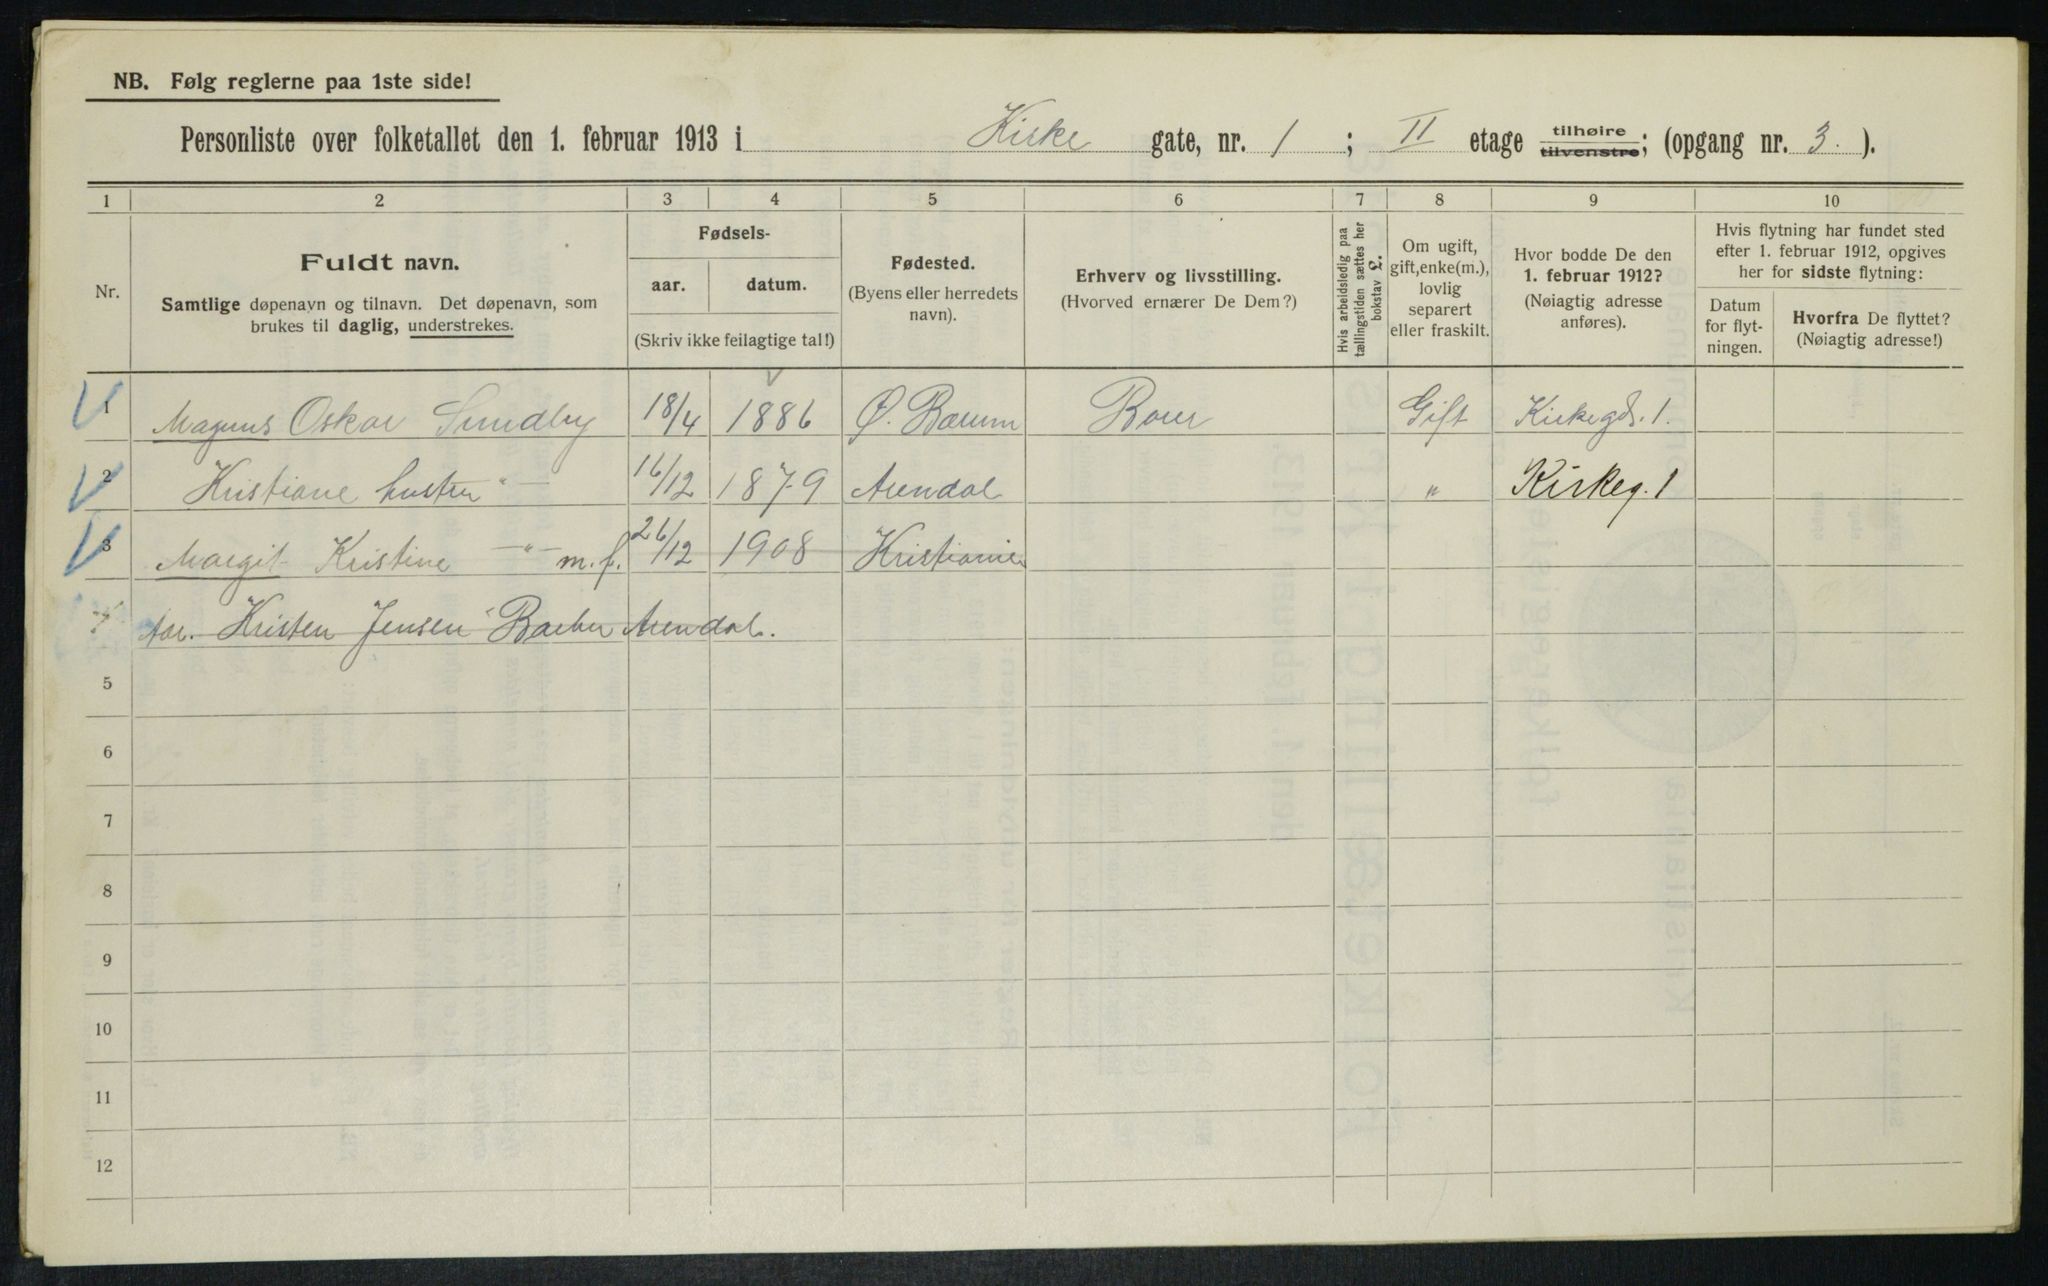 NB. Følg reglerne paa 1ste side!
Personliste over folketallet den 1. februar 1913 i Kirke gate, nr. 1 ; II etage tilhøire tilvenstre; (opgang nr. 3. ).
1 2 3 4 5 6 7 8 9 10
Nr.
Fuldt navn.
Samtlige døpenavn og tilnavn. Det døpenavn, som
brukes til daglig, understrekes.
Fødsels-
aar. datum.
(Skriv ikke feilagtige tal!)
Fødested.
(Byens eller herredets
navn).
Erhverv og livsstilling.
(Hvorved ernærer De Dem?)
Hvis arbeidsledig paa
tællingstiden sættes her
bokstav L.
Om ugift,
gift, enke(m.),
lovlig
separert
eller fraskilt.
Hvor bodde De den
1. februar 1912?
(Nøiagtig adresse
anføres).
Hvis flytning har fundet sted
efter 1. februar 1912, opgives
her for sidste flytning:
Datum
for flyt-
ningen.
Hvorfra De flyttet?
(Nøiagtig adresse!)
1 Magnus Oskar Sundby 18/4 1886 Ø. Bærum Gift Kirkegd. 1.
2 Kristiane hustru " 16/12 1879 Arendal " Kirkeg. 1
3 Margit Kristine " m. f. 26/12 1908 Kristiania
Kristen Jensen Arendal.
5
6
7
8
9
10
11
12